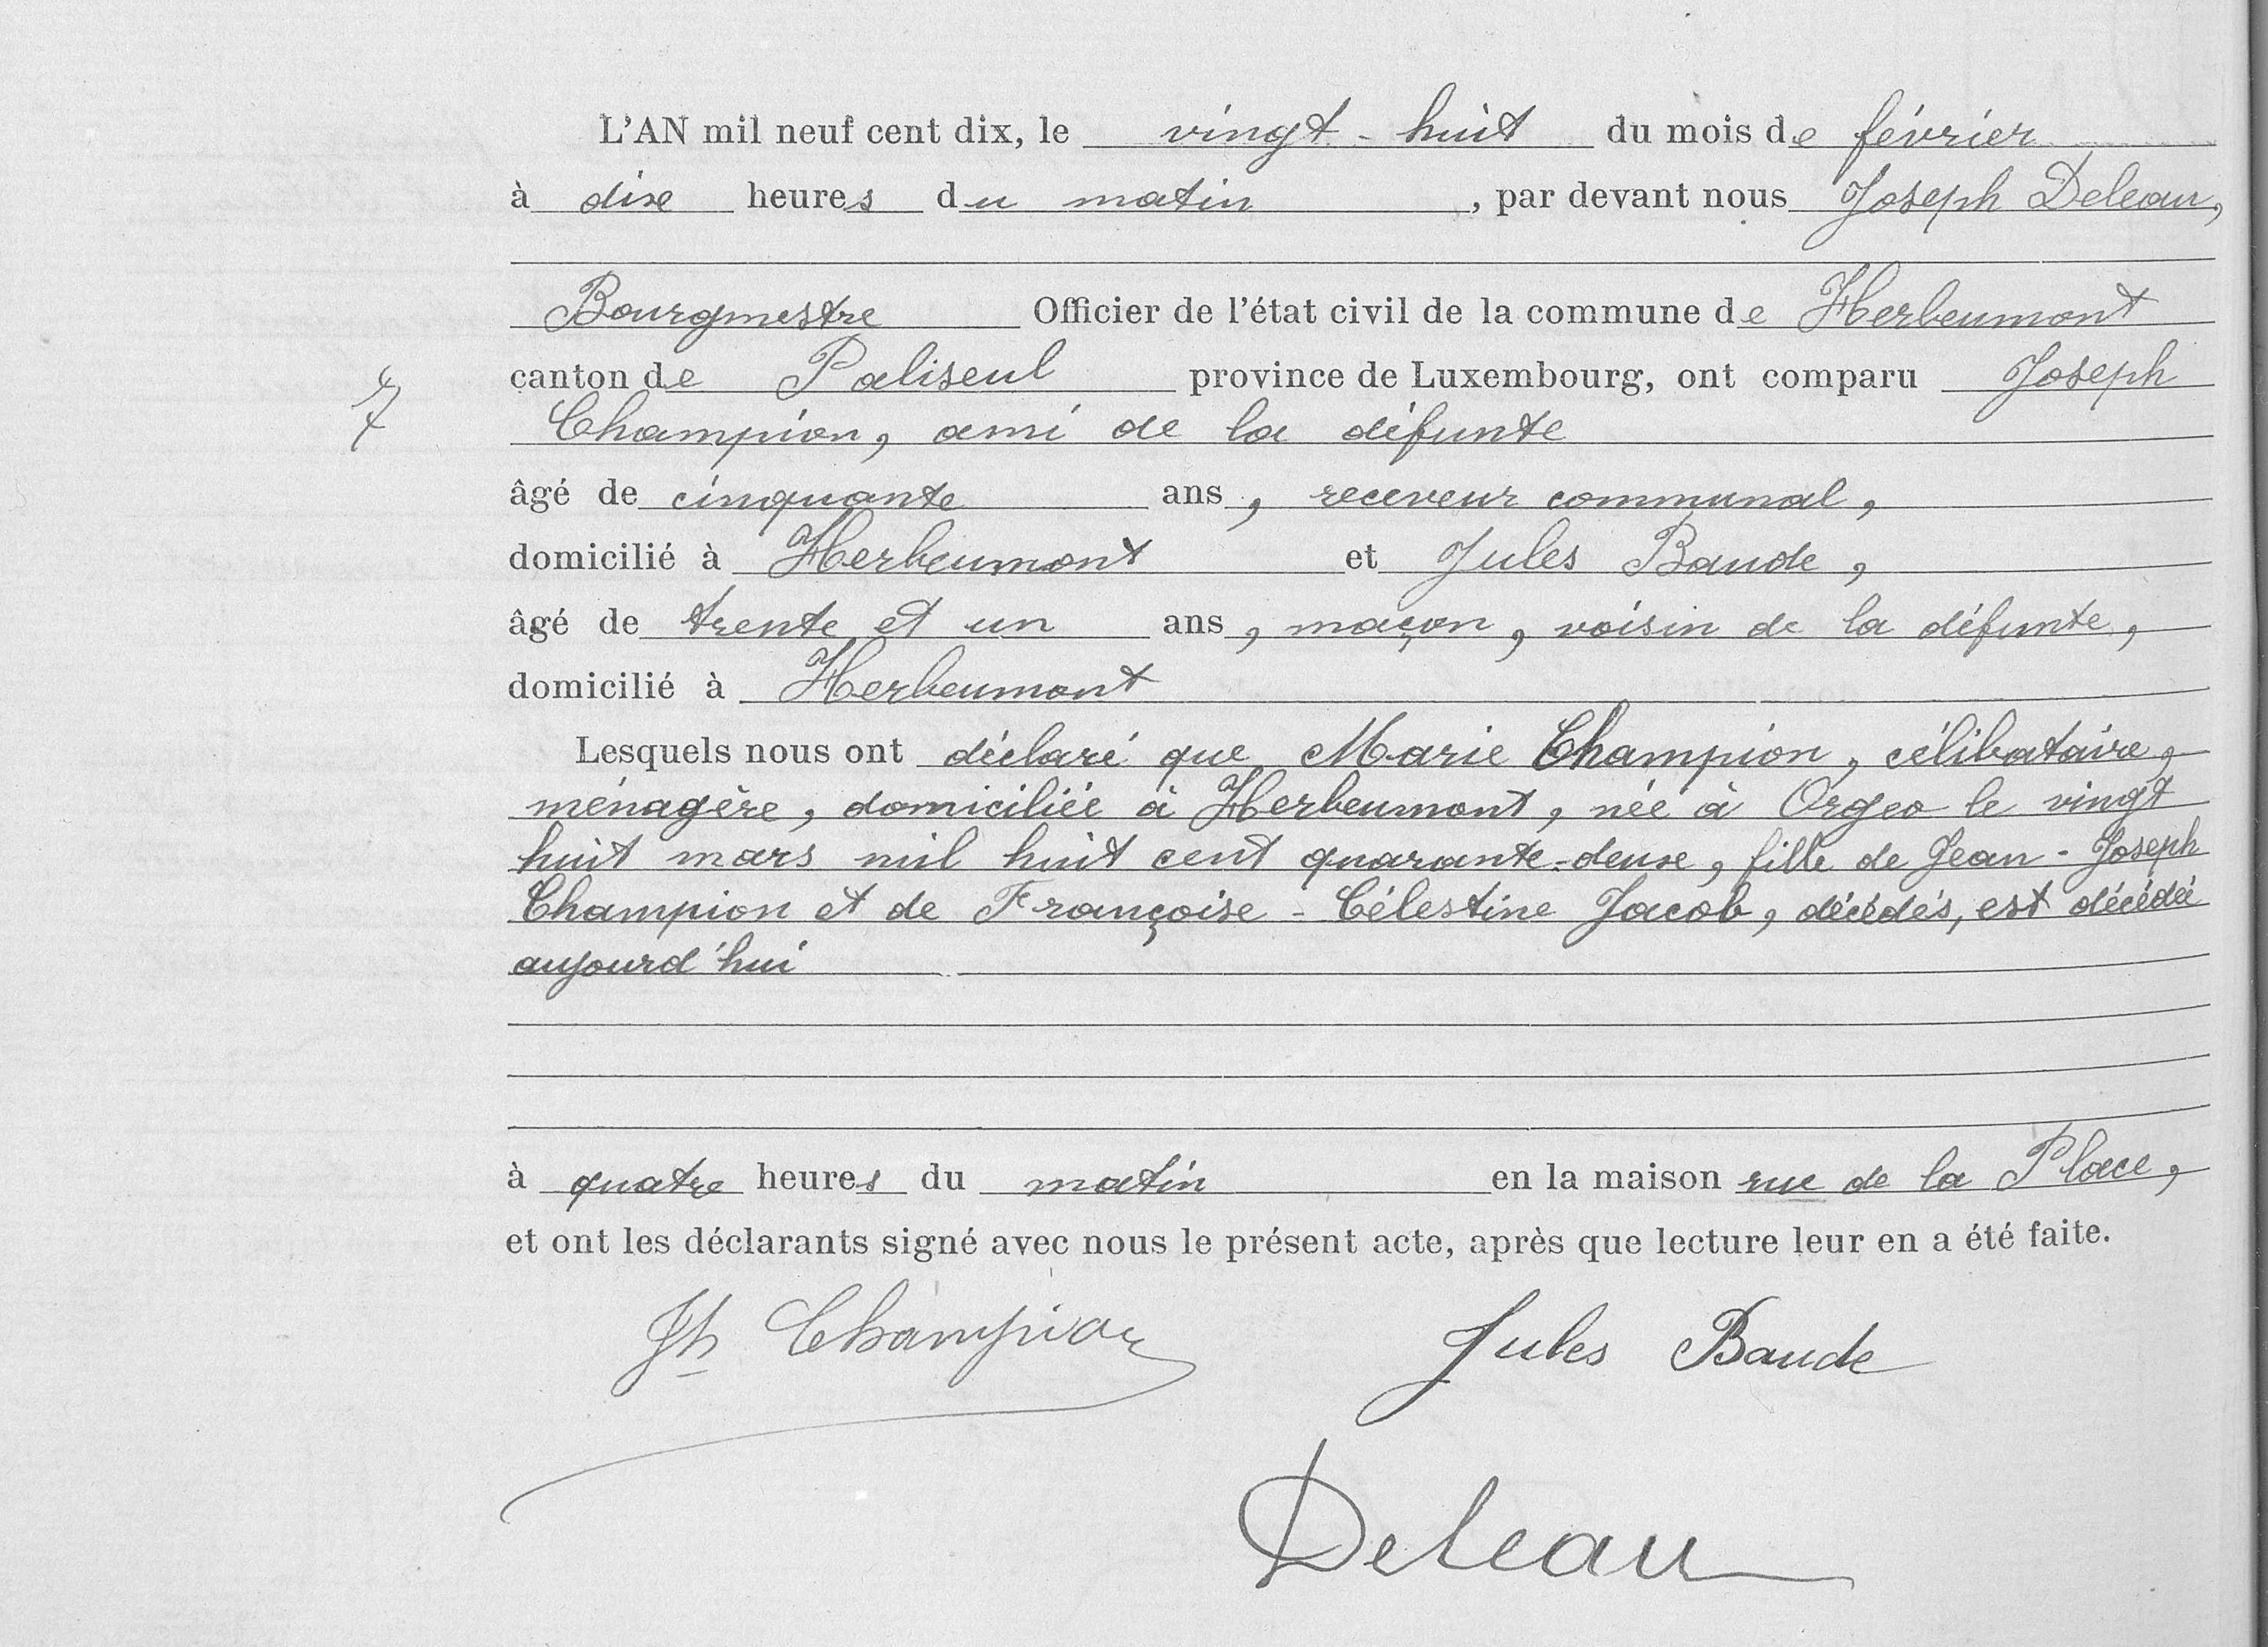 L'AN mil neuf cent dix, le vingt-huit du mois de février
à dix heures du matin, par devant nous Joseph Deleau,
Bourgmestre Officier de l'état civil de la commune de Herbeumont
canton de Paliseul province de Luxembourg, ont comparu Joseph
7
Champion, ami de la défunte
âgé de cinquante ans, receveur communal,
domicilié à Herbeumont et Jules Baude,
âgé de trente et un ans, maçon, voisin de la défunte,
domicilié à Herbeumont
Lesquels nous ont déclaré que Marie Champion, célibataire,
ménagère, domiciliée à Herbeumont, née à Orgeo le vingt
huit mars mil huit cent quarante-deux, fille de Jean-Joseph
Champion et de Françoise-Célestine Jacob, décédés, est décédée
aujourd'hui
à quatre heures du matin en la maison rue de la Place,
et ont les déclarants signé avec nous le présent acte, après que lecture leur en a été faite.
Jh Champion Jules Baude
Deleau